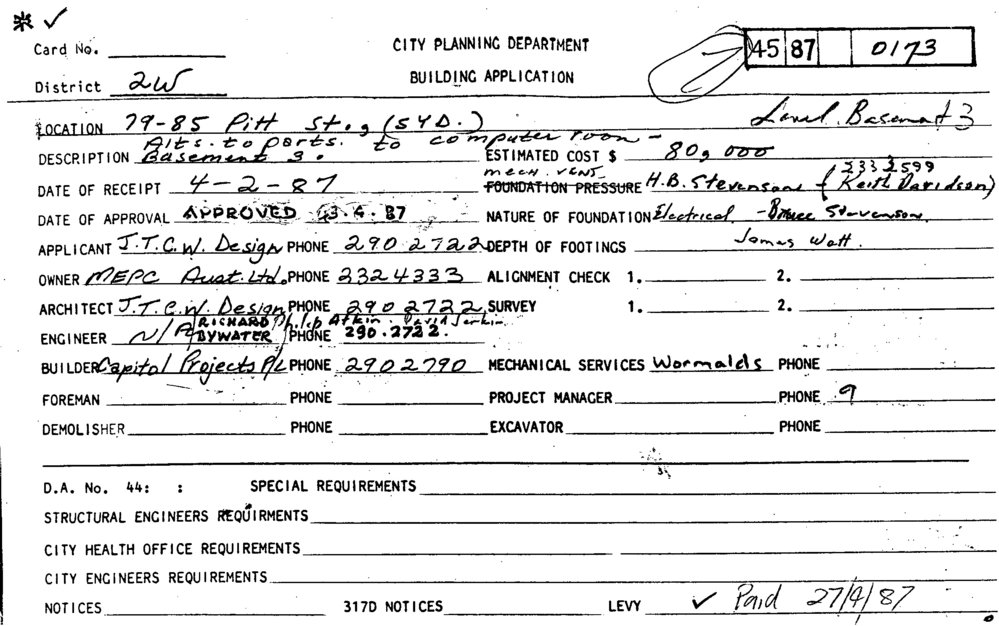 Card No.
CITY PLANNING DEPARTMENT
45 87 0173
District 2W
BUILDING APPLICATION
LOCATION 79-85 Pitt St., (SYD.) Level Basement 3
DESCRIPTION Alts. to parts. to computer room - Basement 3. ESTIMATED COST $ 80,000
DATE OF RECEIPT 4-2-87 mech. vent. FOUNDATION PRESSURE H.B. Stevensons (Keith Davidson)
DATE OF APPROVAL APPROVED 4.87 NATURE OF FOUNDATION Electrical, - Bruce Stevenson,
APPLICANT J.T.C.W. Design PHONE 290 2722 DEPTH OF FOOTINGS James Watt.
OWNER MEPC Aust. Ltd. PHONE 2324333 ALIGNMENT CHECK 1. 2.
ARCHITECT J.T.C.W. Design PHONE 290 2722 SURVEY 1. 2.
ENGINEER N/A RICHARD BYWATER Philip Atkin. David Jenkin. PHONE 290.2722.
BUILDER Capital Projects P/L PHONE 2902790 MECHANICAL SERVICES Wormalds PHONE
FOREMAN PHONE PROJECT MANAGER PHONE 9
DEMOLISHER PHONE EXCAVATOR PHONE
D.A. No. 44: : SPECIAL REQUIREMENTS
STRUCTURAL ENGINEERS REQUIRMENTS
CITY HEALTH OFFICE REQUIREMENTS
CITY ENGINEERS REQUIREMENTS
NOTICES 317D NOTICES LEVY ✓ Paid 27/4/87